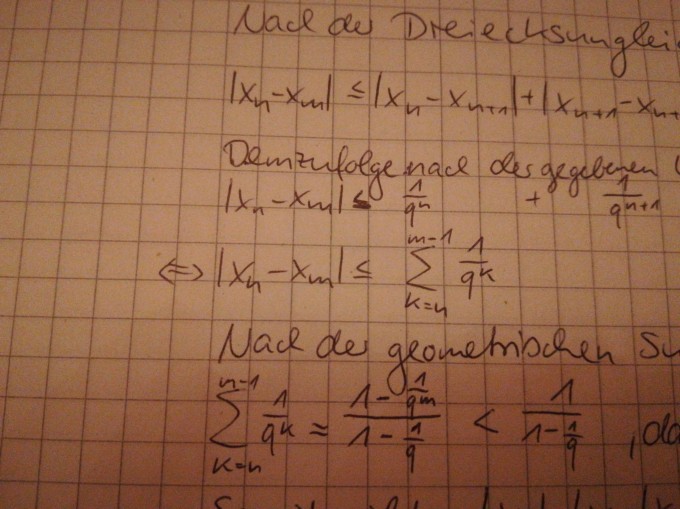 Nach der Dreiecksunglei
|xₙ-xₘ| ≤ |xₙ-xₙ₊₁|+|xₙ₊₁-xₙ₊
Demzufolge nach der gegebenen
|xₙ-xₘ| ≤ 1/qⁿ + 1/qⁿ⁺¹
⇔ |xₙ-xₘ| ≤ ∑_{k=n}^{m-1} 1/qᵏ
Nach der geometrischen Su
∑_{k=n}^{m-1} 1/qᵏ = (1 - 1/qᵐ)/(1 - 1/q) < 1/(1 - 1/q) , da